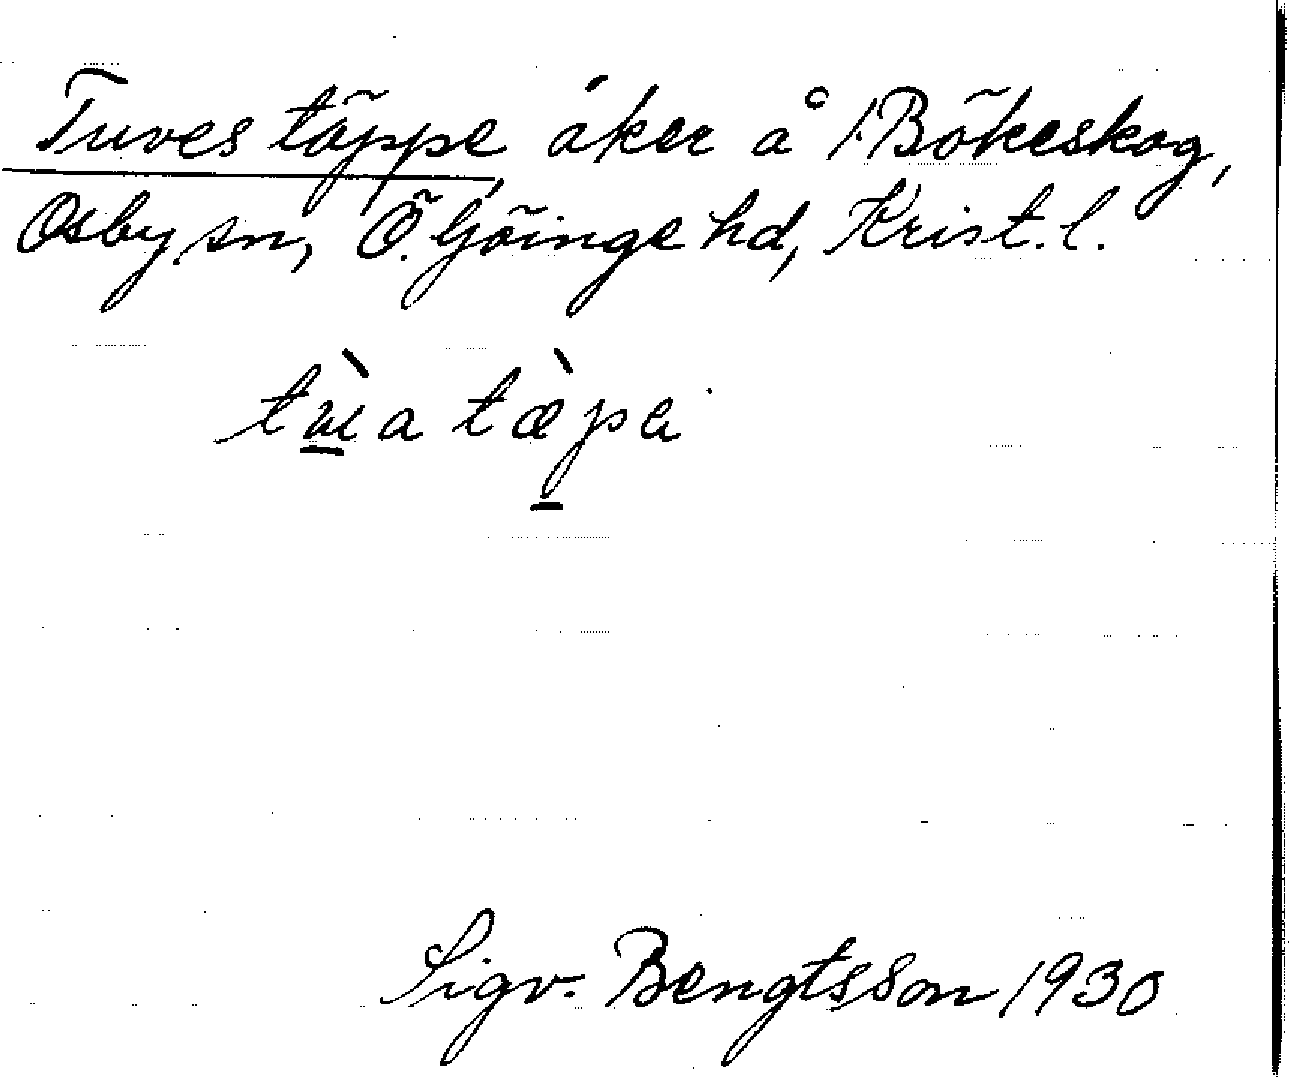 Tuves täppe, åker å 1 Bökeskog,
Osby sn, Ö. Göinge hd, Krist. l.
Sigv. Bengtsson 1930